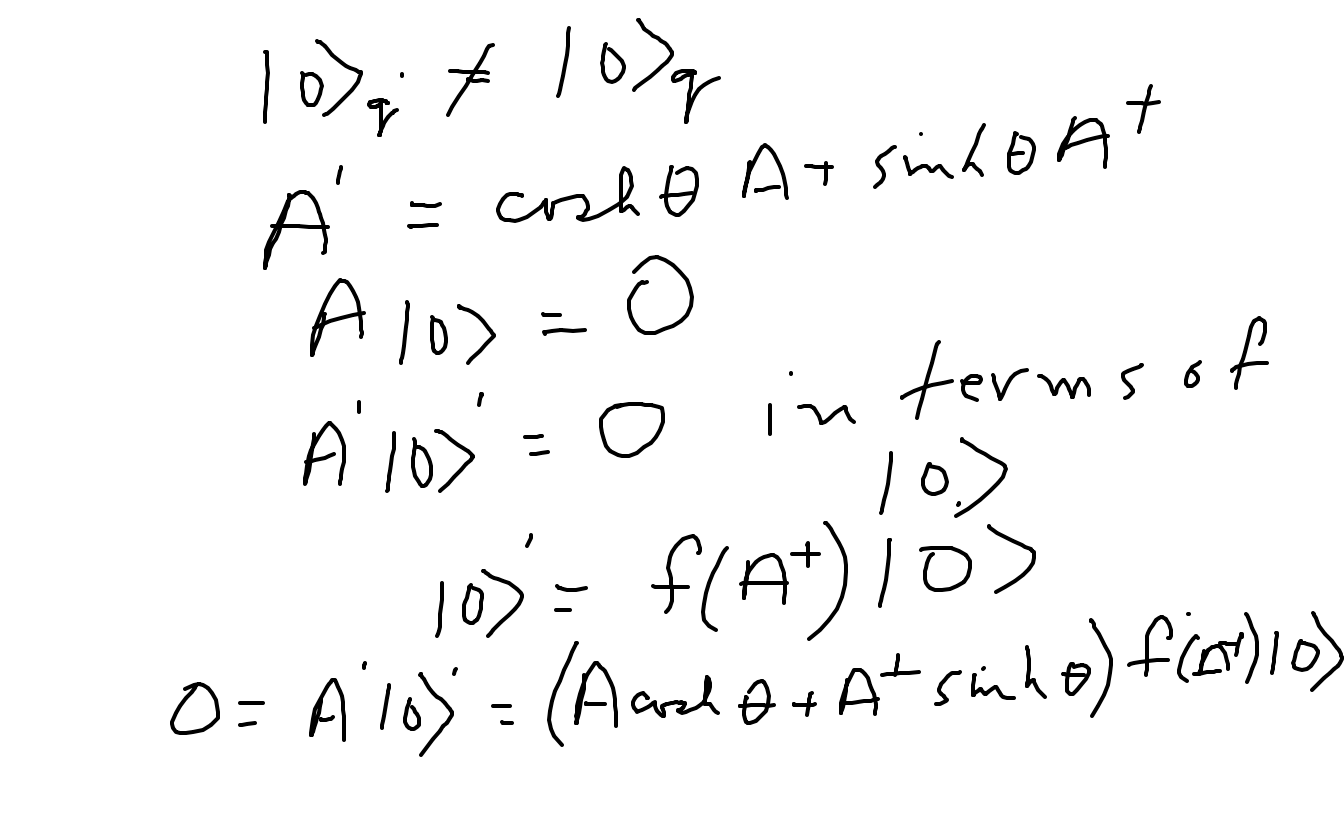 |0⟩_q' ≠ |0⟩_q
A' = cosh θ A + sinh θ A^+
A |0⟩ = 0
A' |0⟩' = 0 in terms of
|0⟩
|0⟩' = f(A^+) |0⟩
0 = A' |0⟩' = (A cosh θ + A^+ sinh θ) f(A^+) |0⟩